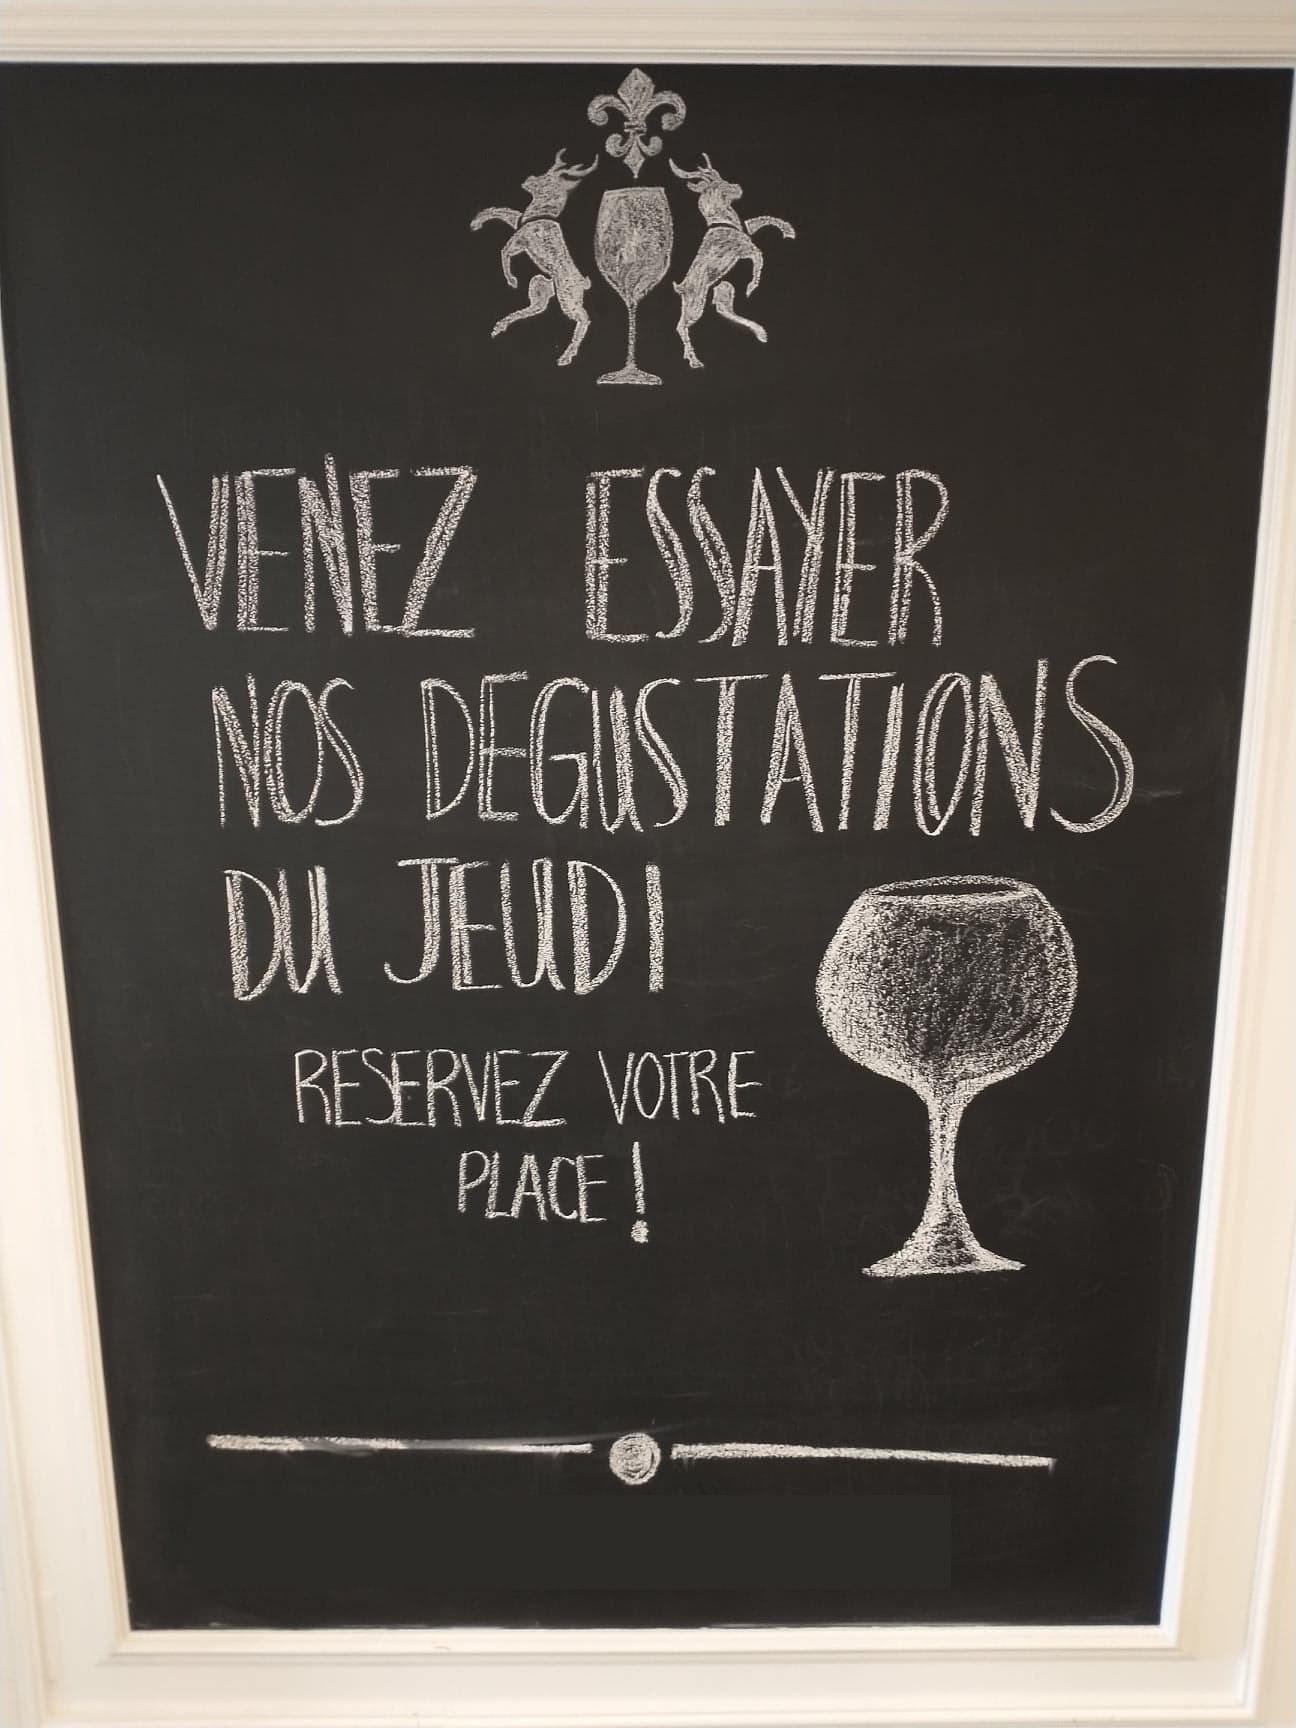 VENEZ ESSAYER
NOS DEGUSTATIONS
DU JEUDI
RESERVEZ VOTRE
PLACE !